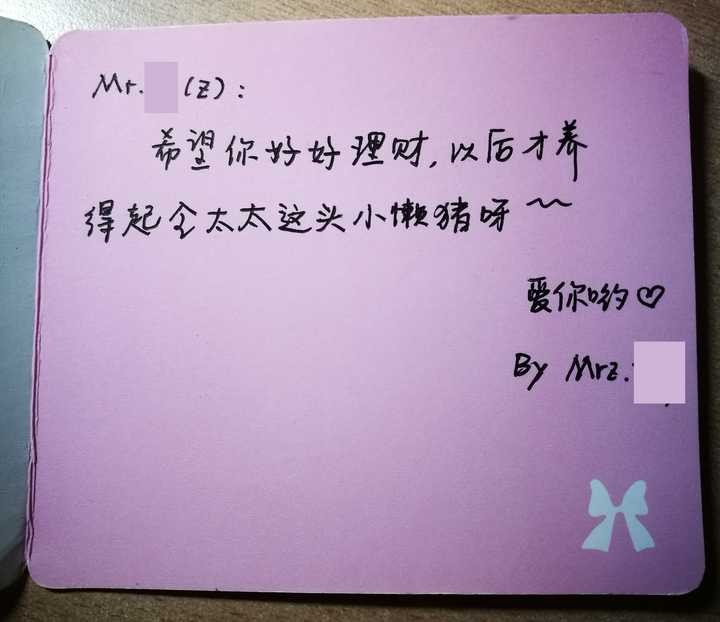 Mr. (z):
希望你好好理财,以后才养
得起仝太太这头小懒猪呀~~
爱你哟♡
By Mrz.